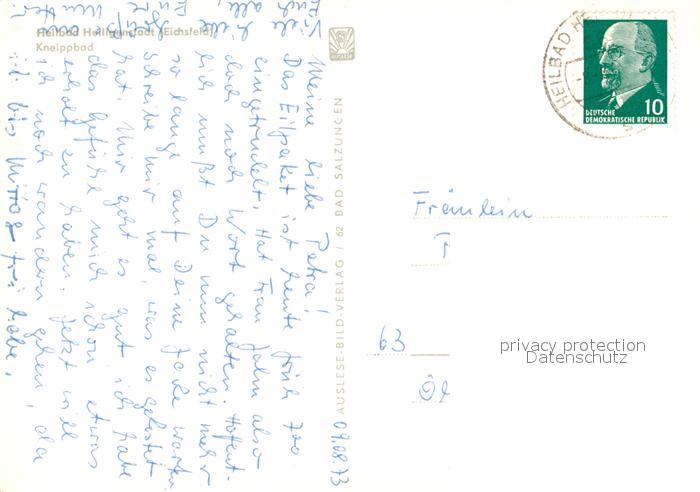 Heilbad Heiligenstadt (Eichsfeld)
Kneippbad
AUSLESE
AUSLESE-BILD-VERLAG / 62 BAD SALZUNGEN
HEILBAD H
10
DEUTSCHE
DEMOKRATISCHE REPUBLIK
09.08.73
Meine liebe Petra!
Das Eilpaket ist heute früh 7 00
eingetrudelt. Hat Frau Jahn also
doch noch Wort gehalten. Hoffent-
lich mußt Du nun nicht mehr
so lange auf Deine Jacke warten
Schreibe mir mal, was es gekostet
hat. Mir geht es gut, ich habe
das Gefühl mich schon etwas
erholt zu haben. Jetzt will
ich noch wandern gehen, da
ich bis Mittag frei habe.
Viele
Fräulein
63
privacy protection
Datenschutz